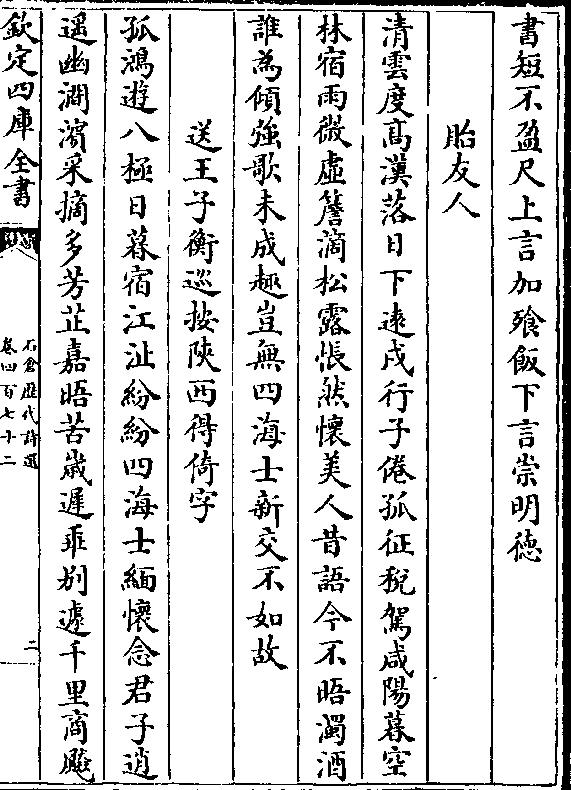 書短不盈尺上言加飱飯下言崇明徳
貽友人
清雲度髙漢落日下逺戍行子倦孤征稅駕咸陽暮空
林宿雨微虚簷滴松露悵然懐美人昔語今不晤濁酒
誰為傾強歌未成趣豈無四海士新交不如故
送王子衡巡按陜西得倚字
孤鴻遊八極日暮宿江沚紛紛四海士緬懐念君子逍
遥幽澗濵采摘多芳芷嘉晤苦嵗遲乖别遽千里商飈
欽定四庫全書
石倉歴代詩選
卷四百七十二
二